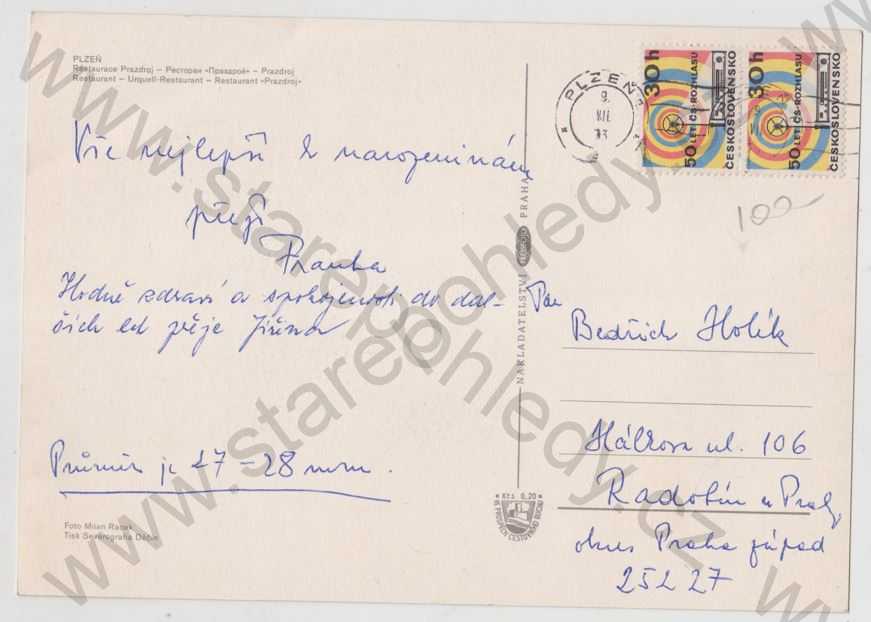 PLZEŇ
Restaurace Prazdroj – Ресторан «Праздрой» – Prazdroj
Restaurant – Urquell-Restaurant – Restaurant «Prazdroj»
Vše nejlepší k narozeninám
přejí
Franta
Hodně zdraví a spokojenosti do dal-
ších let přeje Jiřina
Průměr je 27 – 28 mm.
Foto Milan Racek
Tisk Severografia Děčín
NAKLADATELSTVÍ PRAHA
Kčs 0,20
VE PROSPĚCH CESTOVNÍHO RUCHU
PLZEŇ
9.
VII.
73
30 h
50 LET ČS. ROZHLASU
ČESKOSLOVENSKO
30 h
50 LET ČS. ROZHLASU
ČESKOSLOVENSKO
100
Pan
Bedřich Holík
Hálkova ul. 106
Radotín u Prahy
okres Praha západ
252 27
www.starepohledy.cz
www.starepohledy.cz